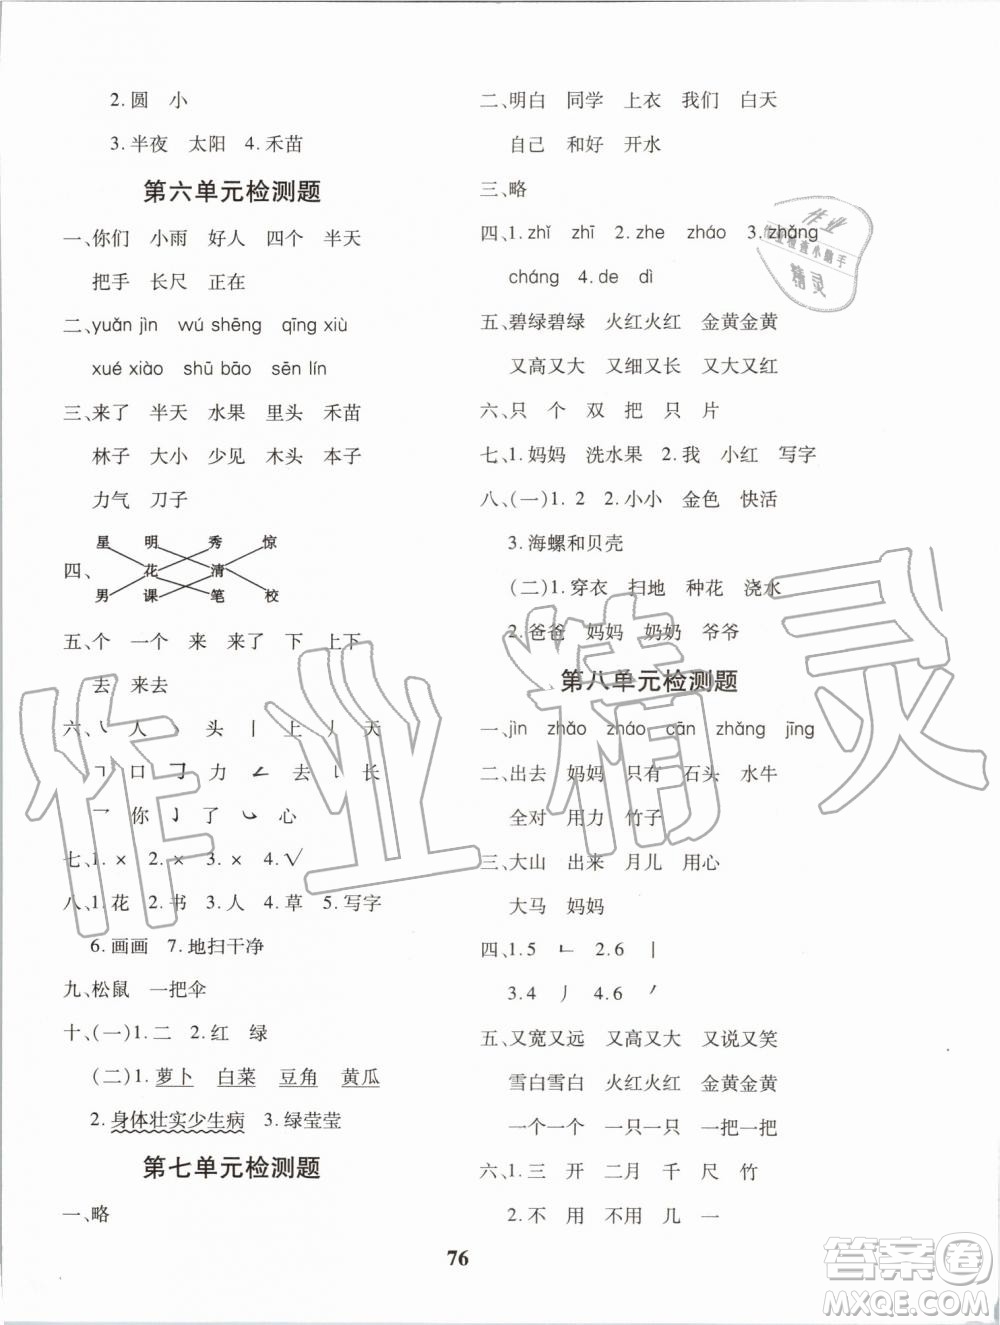 2.圆 小
3.半夜 太阳 4.禾苗
第六单元检测题
一、你们 小雨 好人 四个 半天
把手 长尺 正在
二、yuǎn jìn wú shēng qīng xiù
xué xiào shū bāo sēn lín
三、来了 半天 水果 里头 禾苗
林子 大小 少见 木头 本子
力气 刀子
星 明 秀 惊
四、 花 清
男 课 笔 校
五、个 一个 来 来了 下 上下
去 来去
六、㇏ 人 丶 头 丨 上 丿 天
㇕ 口 ㇆ 力 ㇜ 去 ㇄ 长
乛 你 亅 了 ㇃ 心
七、1.× 2.× 3.× 4.√
八、1.花 2.书 3.人 4.草 5.写字
6.画画 7.地扫干净
九、松鼠 一把伞
十、(一)1.二 2.红 绿
(二)1.萝卜 白菜 豆角 黄瓜
2.身体壮实少生病 3.绿莹莹
第七单元检测题
一、略
二、明白 同学 上衣 我们 白天
自己 和好 开水
三、略
四、1.zhǐ zhī 2.zhe zháo 3.zhǎng
cháng 4.de dì
五、碧绿碧绿 火红火红 金黄金黄
又高又大 又细又长 又大又红
六、只 个 双 把 只 片
七、1.妈妈 洗水果 2.我 小红 写字
八、(一)1. 2 2.小小 金色 快活
3.海螺和贝壳
(二)1.穿衣 扫地 种花 浇水
2.爸爸 妈妈 奶奶 爷爷
第八单元检测题
一、jìn zhǎo zháo cān zhǎng jīng
二、出去 妈妈 只有 石头 水牛
全对 用力 竹子
三、大山 出来 月儿 用心
大马 妈妈
四、1.5 ㇗ 2.6 丨
3.4 丿 4.6 ㇒
五、又宽又远 又高又大 又说又笑
雪白雪白 火红火红 金黄金黄
一个一个 一只一只 一把一把
六、1.三 开 二月 千 尺 竹
2.不 用 不用 几 一
76
作业
作业检查小助手
精灵
作业精灵
答案卷
MXQE.COM